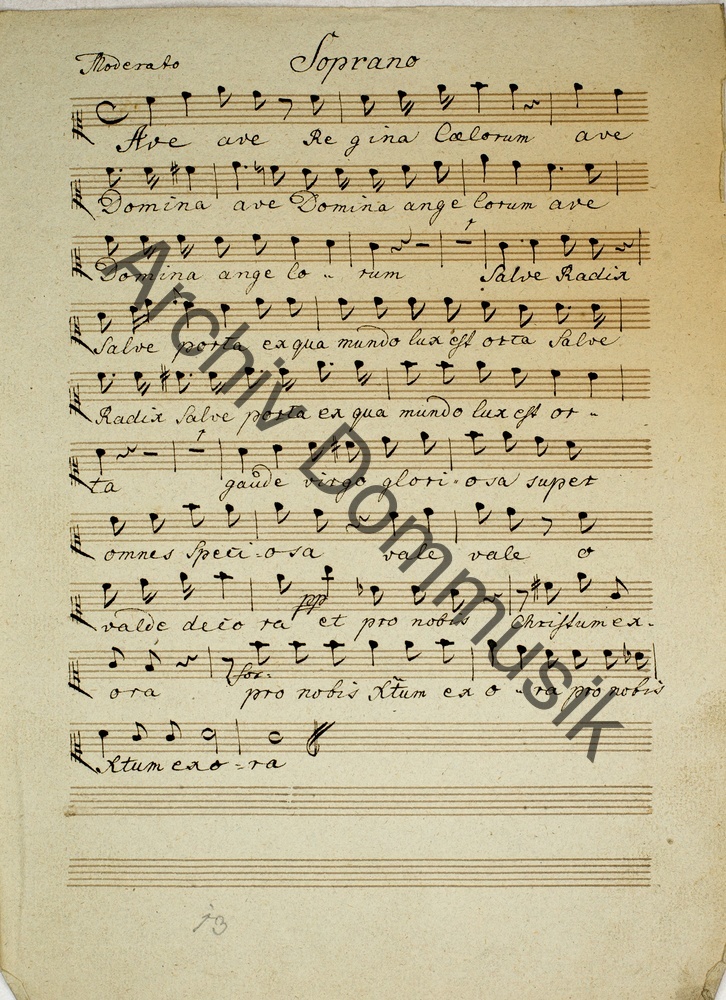 Moderato Soprano
Ave ave Regina Cælorum ave
Domina ave Domina angelorum ave
Domina angelo - rum Salve Radix
Salve porta ex qua mundo lux est orta Salve
Radix Salve porta ex qua mundo lux est or -
ta gaude virgo glori - osa super
omnes Speci - osa vale vale o
valde deco ra pp et pro nobis Christum ex -
ora for: pro nobis Xtum ex o - ra pro nobis
Xtum exo - ra
13
Archiv Dommusik